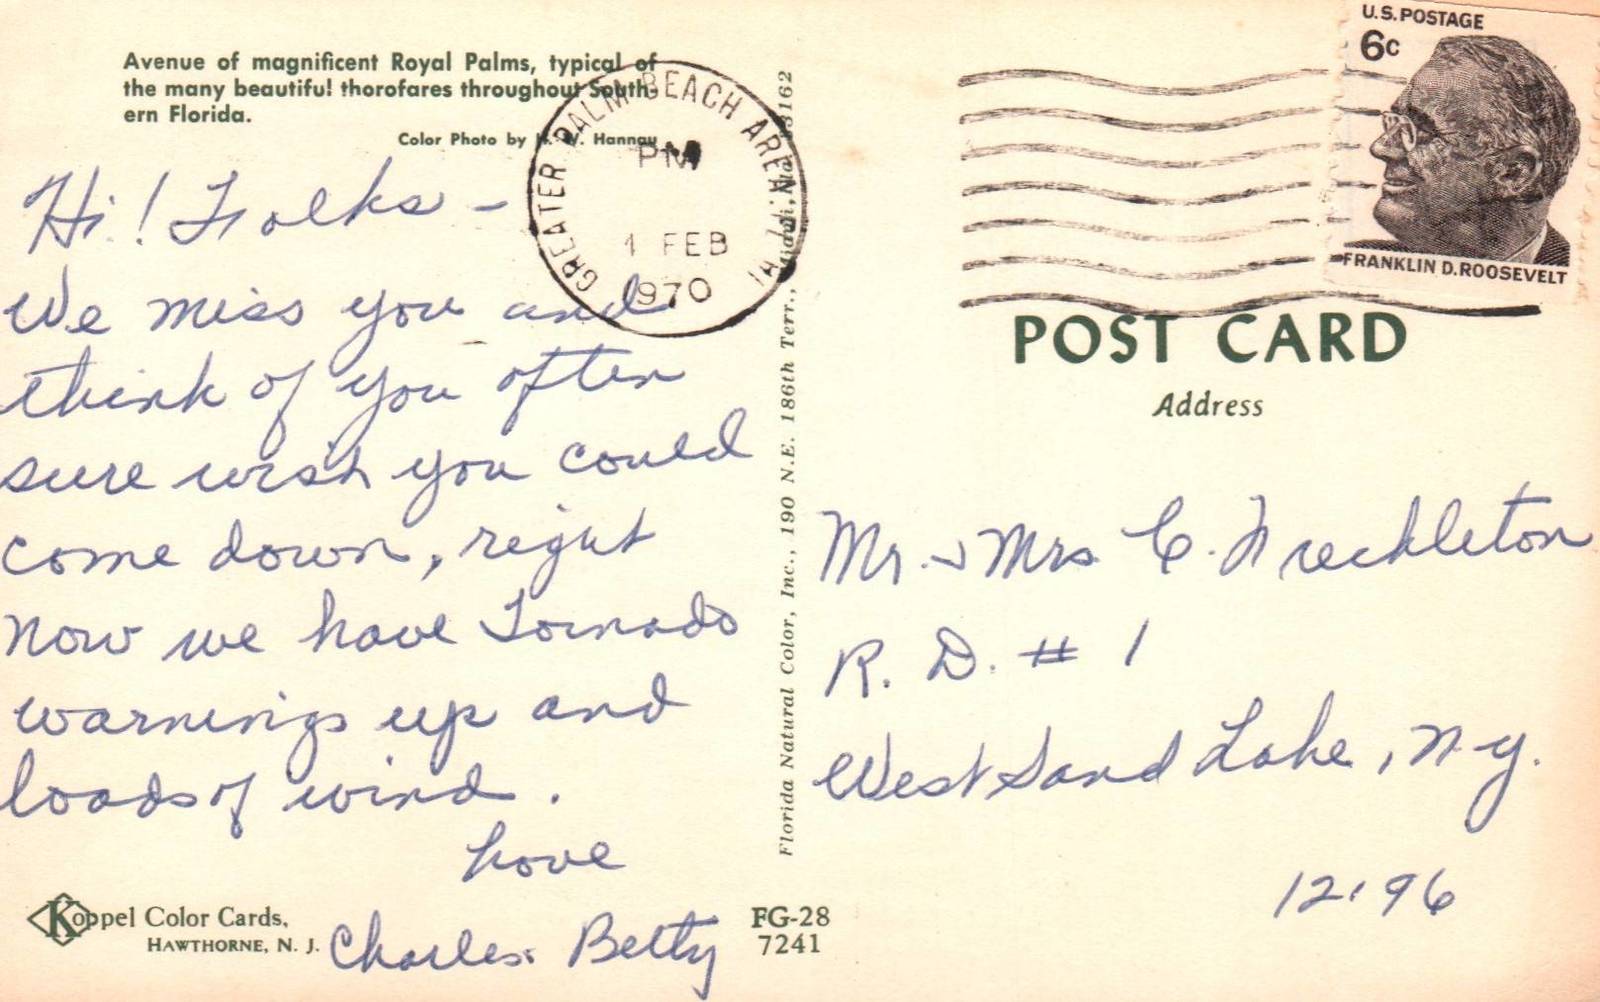 Avenue of magnificent Royal Palms, typical of
the many beautiful thorofares throughout South-
ern Florida.
Color Photo by H. W. Hannau
GREATER PALM BEACH AREA
PM
1 FEB
1970
U.S. POSTAGE
6c
FRANKLIN D. ROOSEVELT
Hi! Folks -
We miss you and
think of you often
sure wish you could
come down, right
now we have Tornado
warnings up and
loads of wind.
Love
Charles. Betty
Koppel Color Cards,
HAWTHORNE, N. J.
FG-28
7241
Florida Natural Color, Inc., 190 N.E. 186th Terr., Miami, Fla. 33162
POST CARD
Address
Mr. & Mrs C. Freckleton
R. D. # 1
West Sand Lake, N-y.
12196